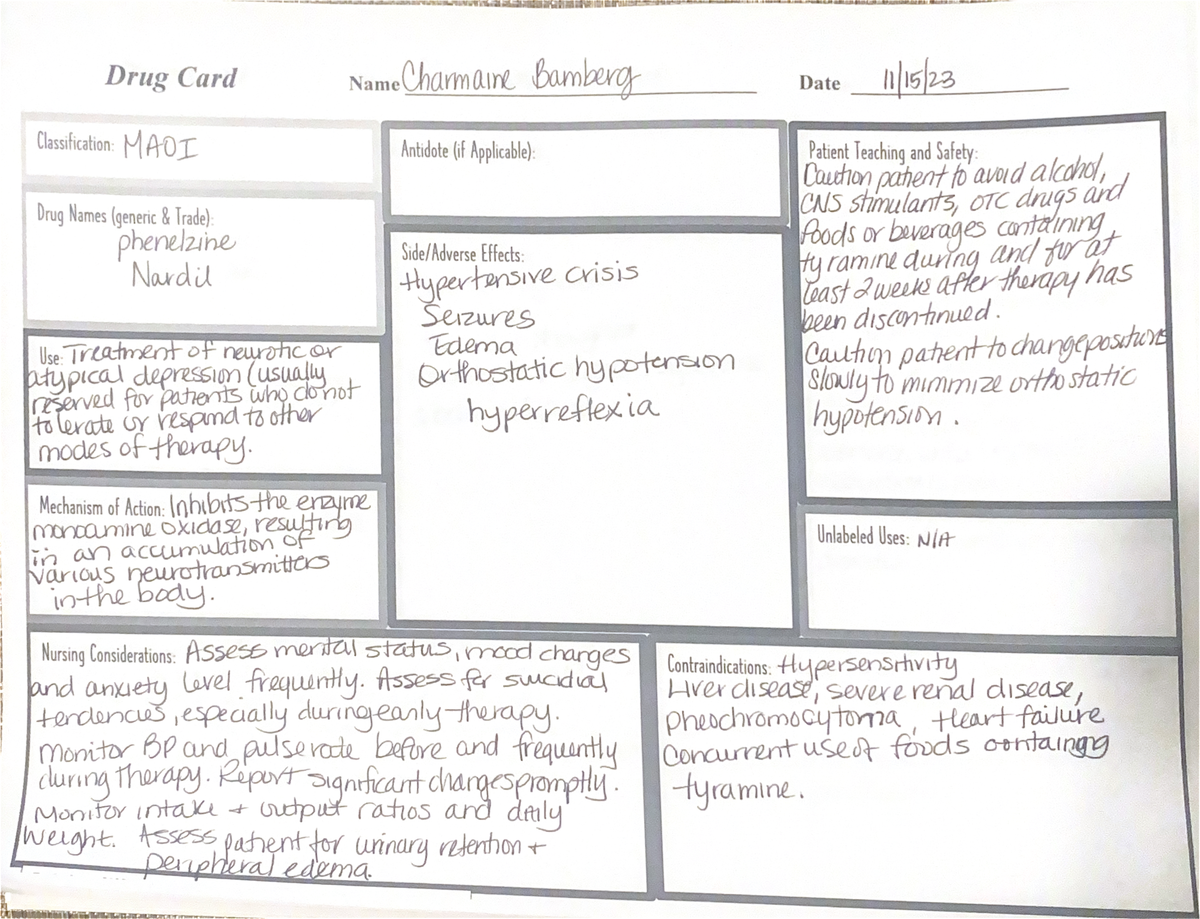 Drug Card Name Charmaine Bamberg Date 11/15/23
Classification: MAOI
Drug Names (generic & Trade):
phenelzine
Nardil
Use: Treatment of neurotic or
atypical depression (usually
reserved for patients who do not
tolerate or respond to other
modes of therapy.
Mechanism of Action: Inhibits the enzyme
monoamine oxidase, resulting
in an accumulation of
various neurotransmitters
in the body.
Antidote (if Applicable):
Side/Adverse Effects:
Hypertensive crisis
Seizures
Edema
Orthostatic hypotension
hyperreflexia
Patient Teaching and Safety:
Caution patient to avoid alcohol,
CNS stimulants, OTC drugs and
foods or beverages containing
tyramine during and for at
least 2 weeks after therapy has
been discontinued.
Caution patient to change positions
slowly to minimize orthostatic
hypotension.
Unlabeled Uses: N/A
Nursing Considerations: Assess mental status, mood changes
and anxiety level frequently. Assess for suicidial
tendencies, especially during early therapy.
Monitor BP and pulse rate before and frequently
during therapy. Report significant changes promptly.
Monitor intake + output ratios and daily
weight. Assess patient for urinary retention +
peripheral edema.
Contraindications: Hypersensitivity
Liver disease, severe renal disease,
pheochromocytoma, Heart failure
Concurrent use of foods containing
tyramine.